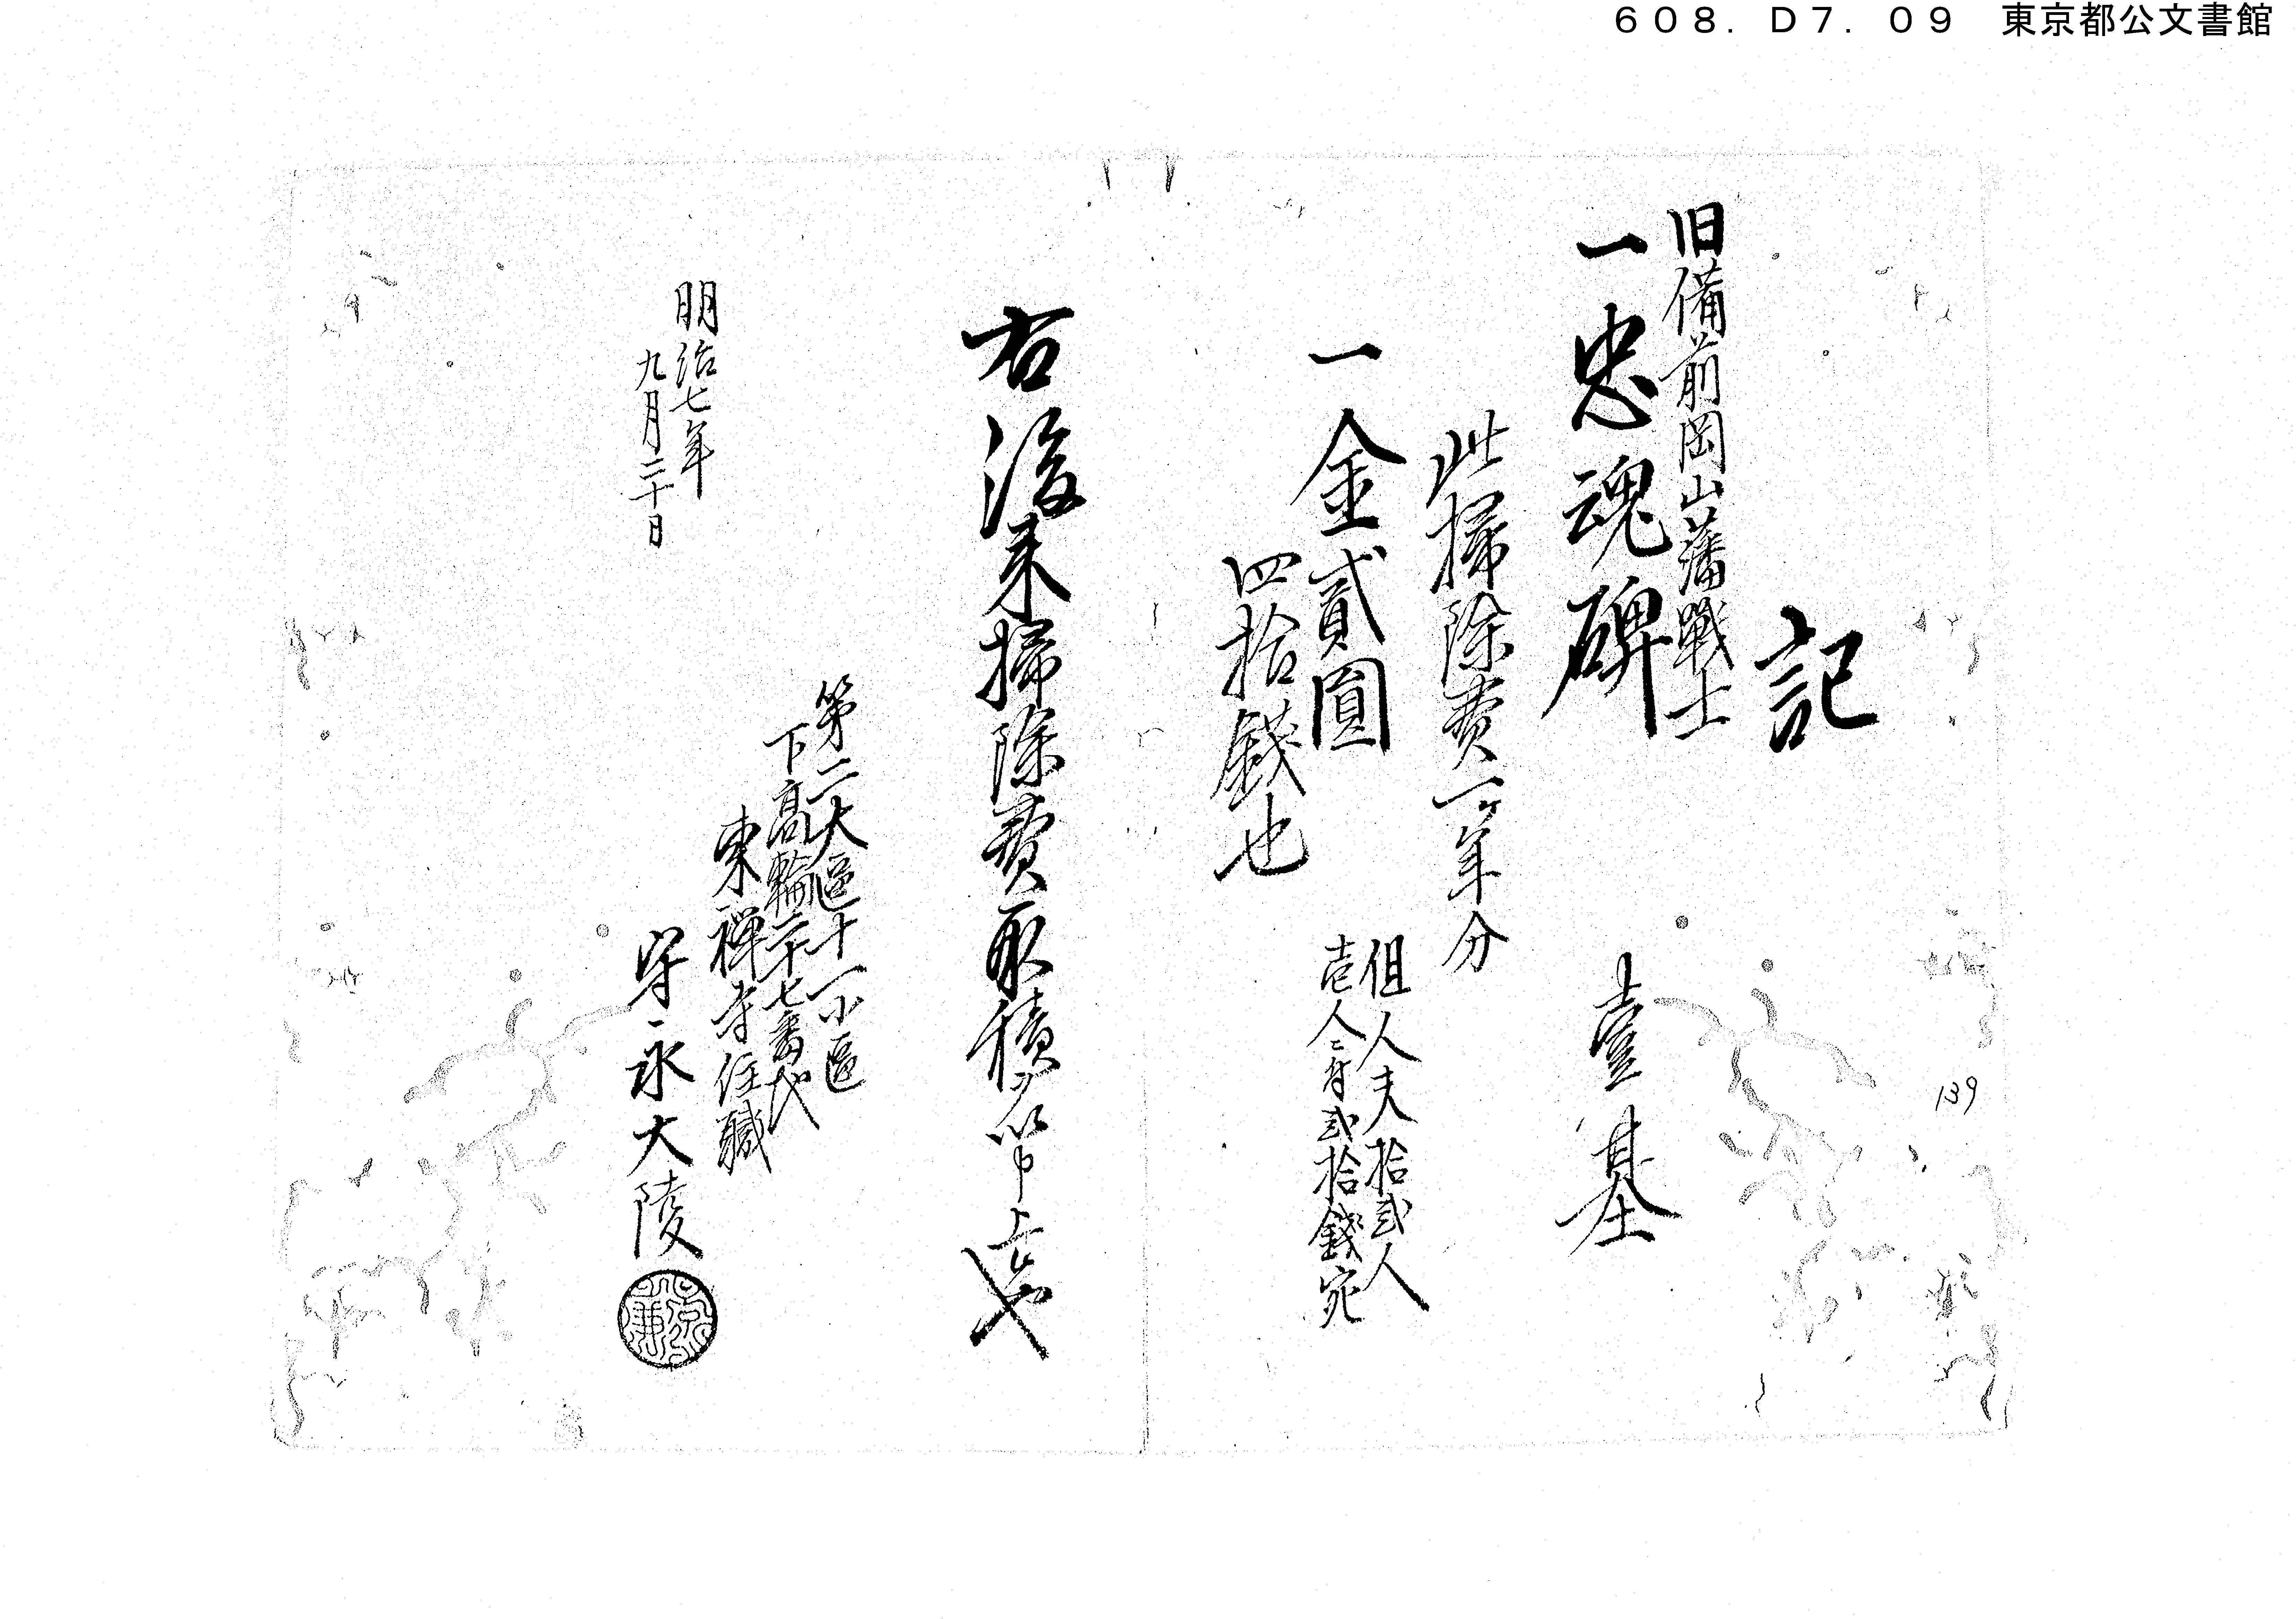 608.D7.09 東京都公文書館
記
旧備前岡山藩戦士
一忠魂碑 壹基
此掃除費一ヶ年分
一金貳圓
四拾錢也
但人夫拾貳人
壱人ニ付貳拾錢宛
右後来掃除費取積
第二大區十一小區
下高輪二十七番地
東禅寺住職
守永大陵
明治七年
九月三十日
139